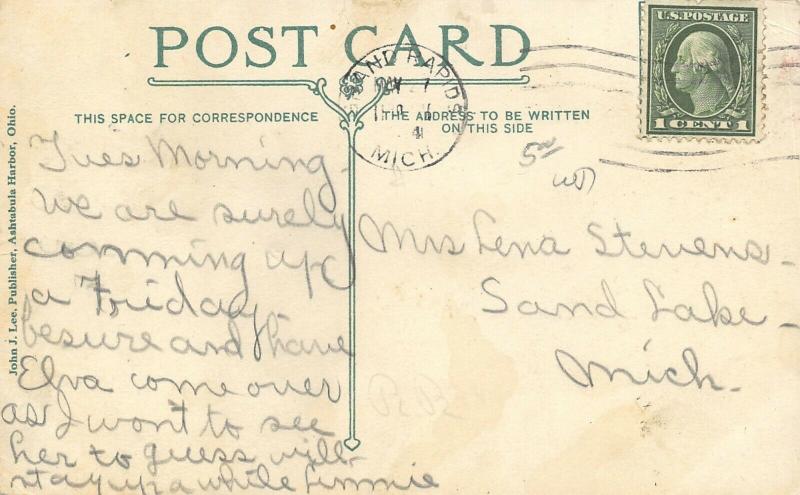 POST CARD
GRAND RAPIDS
MICH.
U.S. POSTAGE
1 CENT 1
THIS SPACE FOR CORRESPONDENCE
THE ADDRESS TO BE WRITTEN
ON THIS SIDE
John J. Lee, Publisher, Ashtabula Harbor, Ohio.
500
Tues Morning -
we are surely
comming up
a Friday
besure and have
Elva come over
as I wont to see
her to guess will
stay up a while
Mrs Lena Stevens -
Sand Lake -
Mich.
RR